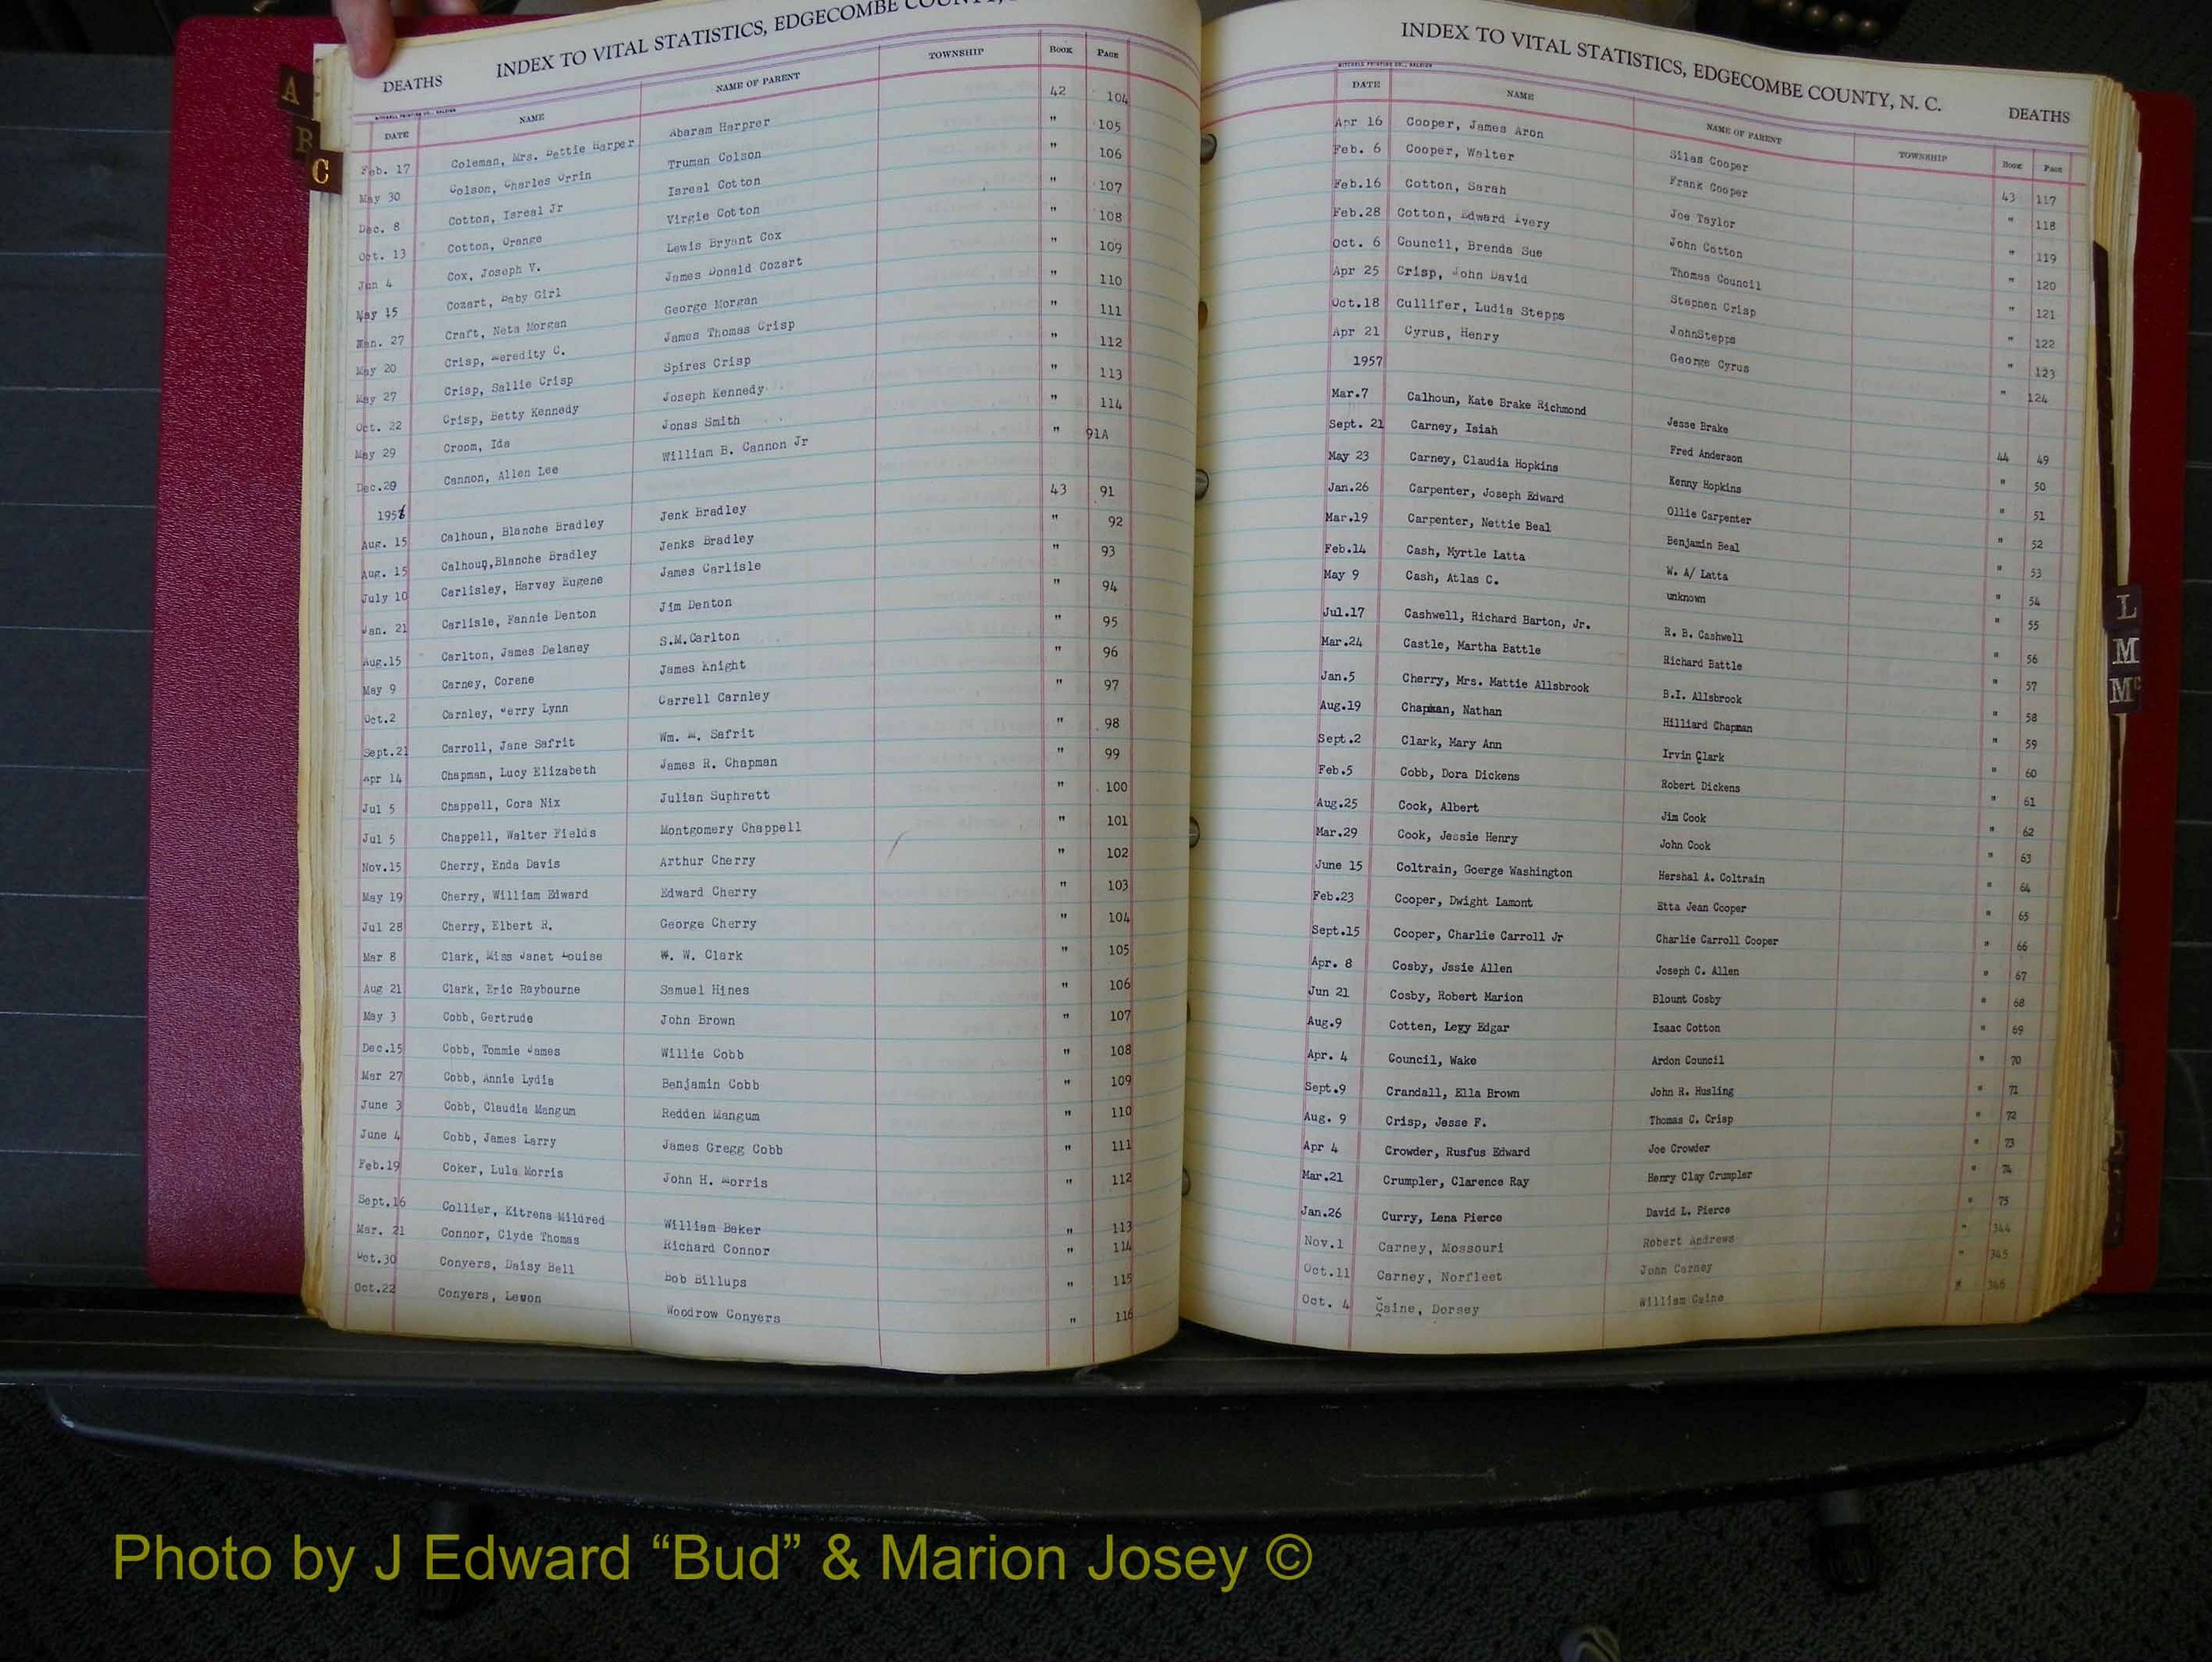 A
B
C
DEATHS INDEX TO VITAL STATISTICS, EDGECOMBE COUNTY,
MITCHELL PRINTING CO., RALEIGH
DATE NAME NAME OF PARENT TOWNSHIP BOOK PAGE
Feb. 17 Coleman, Mrs. Bettie Harper Abaram Harprer 42 104
May 30 Colson, Charles Orrin Truman Colson " 105
Dec. 8 Cotton, Isreal Jr Isreal Cotton " 106
Oct. 13 Cotton, Orange Virgie Cotton " 107
Jan 4 Cox, Joseph V. Lewis Bryant Cox " 108
May 15 Cozart, Baby Girl James Donald Cozart " 109
27 Craft, Neta Morgan George Morgan " 110
May 20 Crisp, Heredity C. James Thomas Crisp " 111
May 27 Crisp, Sallie Crisp Spires Crisp " 112
Oct. 22 Crisp, Betty Kennedy Joseph Kennedy " 113
May 29 Croom, Ida Jonas Smith " 114
Dec.29 Cannon, Allen Lee William B. Cannon Jr " 91A
1956
Aug. 15 Calhoun, Blanche Bradley Jenk Bradley 43 91
Aug. 15 Calhoun,Blanche Bradley Jenks Bradley " 92
July 10 Carlisley, Harvey Eugene James Carlisle " 93
Jan. 21 Carlisle, Fannie Denton Jim Denton " 94
Aug.15 Carlton, James Delaney S.M.Carlton " 95
May 9 Carney, Corene James Knight " 96
Oct.2 Carnley, Jerry Lynn Carrell Carnley " 97
Sept.21 Carroll, Jane Safrit Wm. M. Safrit " 98
Apr 14 Chapman, Lucy Elizabeth James R. Chapman " 99
Jul 5 Chappell, Cora Nix Julian Suphrett " 100
Jul 5 Chappell, Walter Fields Montgomery Chappell " 101
Nov.15 Cherry, Enda Davis Arthur Cherry " 102
May 19 Cherry, William Edward Edward Cherry " 103
Jul 28 Cherry, Elbert R. George Cherry " 104
Mar 8 Clark, Miss Janet Louise W. W. Clark " 105
Aug 21 Clark, Eric Raybourne Samuel Hines " 106
May 3 Cobb, Gertrude John Brown " 107
Dec.15 Cobb, Tommie James Willie Cobb " 108
Mar 27 Cobb, Annie Lydia Benjamin Cobb " 109
June 3 Cobb, Claudia Mangum Redden Mangum " 110
June 4 Cobb, James Larry James Gregg Cobb " 111
Feb.19 Coker, Lula Morris John H. Morris " 112
Sept.16 Collier, Kitrena Mildred William Baker " 113
Mar. 21 Connor, Clyde Thomas Richard Connor " 114
Oct.30 Conyers, Daisy Bell Bob Billups " 115
Oct.22 Conyers, Lemon Woodrow Conyers " 116
INDEX TO VITAL STATISTICS, EDGECOMBE COUNTY, N. C. DEATHS
MITCHELL PRINTING CO., RALEIGH
DATE NAME NAME OF PARENT TOWNSHIP BOOK PAGE
Apr 16 Cooper, James Aron Silas Cooper 43 117
Feb. 6 Cooper, Walter Frank Cooper " 118
Feb.16 Cotton, Sarah Joe Taylor " 119
Feb.28 Cotton, Edward Ivery John Cotton " 120
Oct. 6 Council, Brenda Sue Thomas Council " 121
Apr 25 Crisp, John David Stephen Crisp " 122
Oct.18 Cullifer, Ludia Stepps JohnStepps " 123
Apr 21 Cyrus, Henry George Cyrus " 124
1957
Mar.7 Calhoun, Kate Brake Richmond Jesse Brake 44 49
Sept. 21 Carney, Isiah Fred Anderson " 50
May 23 Carney, Claudia Hopkins Kenny Hopkins " 51
Jan.26 Carpenter, Joseph Edward Ollie Carpenter " 52
Mar.19 Carpenter, Nettie Beal Benjamin Beal " 53
Feb.14 Cash, Myrtle Latta W. A/ Latta " 54
May 9 Cash, Atlas C. unknown " 55
Jul.17 Cashwell, Richard Barton, Jr. R. B. Cashwell " 56
Mar.24 Castle, Martha Battle Richard Battle " 57
Jan.5 Cherry, Mrs. Mattie Allsbrook B.I. Allsbrook " 58
Aug.19 Chapman, Nathan Hilliard Chapman " 59
Sept.2 Clark, Mary Ann Irvin Clark " 60
Feb.5 Cobb, Dora Dickens Robert Dickens " 61
Aug.25 Cook, Albert Jim Cook " 62
Mar.29 Cook, Jessie Henry John Cook " 63
June 15 Coltrain, Goerge Washington Hershal A. Coltrain " 64
Feb.23 Cooper, Dwight Lamont Etta Jean Cooper " 65
Sept.15 Cooper, Charlie Carroll Jr Charlie Carroll Cooper " 66
Apr. 8 Cosby, Jssie Allen Joseph C. Allen " 67
Jun 21 Cosby, Robert Marion Blount Cosby " 68
Aug.9 Cotten, Legy Edgar Isaac Cotton " 69
Apr. 4 Council, Wake Ardon Council " 70
Sept.9 Crandall, Ella Brown John R. Husling " 71
Aug. 9 Crisp, Jesse F. Thomas C. Crisp " 72
Apr 4 Crowder, Rusfus Edward Joe Crowder " 73
Mar.21 Crumpler, Clarence Ray Henry Clay Crumpler " 74
Jan.26 Curry, Lena Pierce David L. Pierce " 75
Nov.1 Carney, Mossouri Robert Andrews " 344
Oct.11 Carney, Norfleet John Carney " 345
Oct. 4 Caine, Dorsey William Caine " 346
L
M
Mc
Photo by J Edward “Bud” & Marion Josey ©